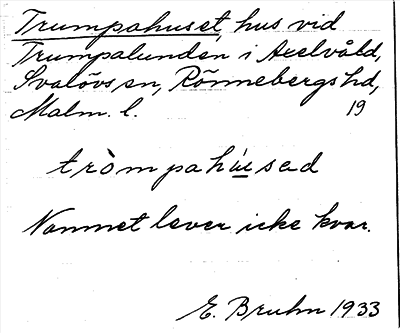 Trumpahuset, hus vid
Trumpalunden i Axelvåld,
Svalövs sn, Rönnebergs hd,
Malm. l. 19
trò̀mpahúsad
Namnet lever icke kvar.
E. Bruhn 1933